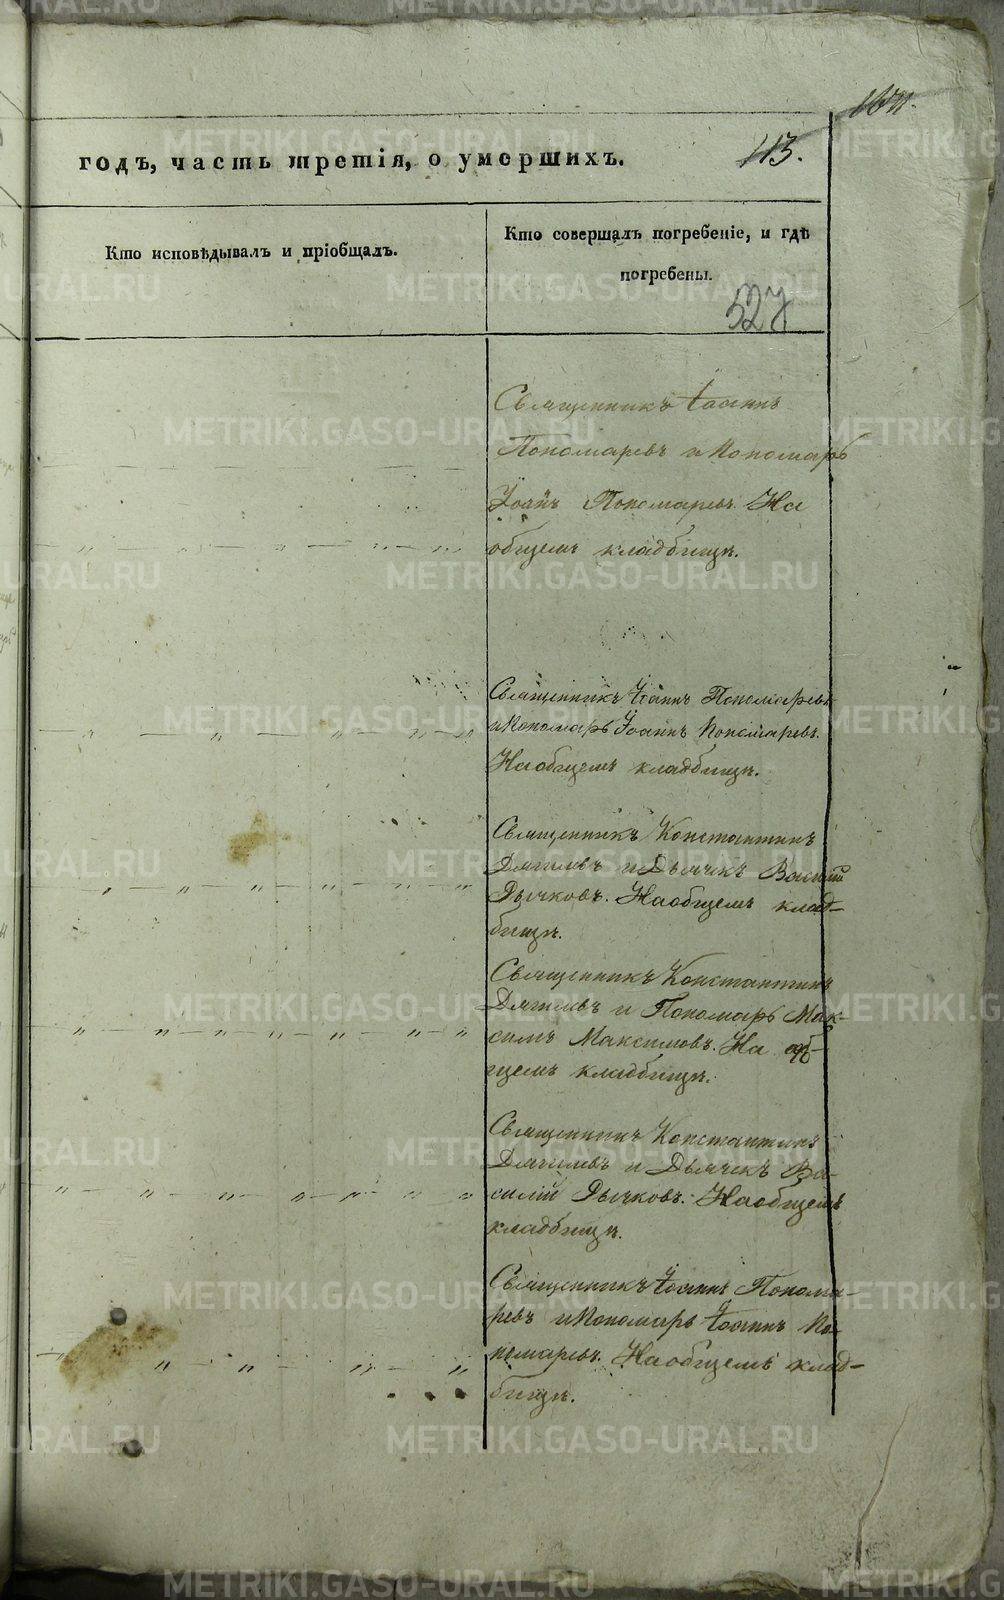 годъ, часть третія, о умершихъ.
113.
Кто исповѣдывалъ и пріобщалъ.
Кто совершалъ погребеніе, и гдѣ
погребены.
527
Священникъ Іоаннъ
Пономаревъ и Пономарь
Іоаннъ Пономаревъ. На
общемъ кладбищѣ.
Священникъ Іоаннъ Пономаревъ
и Пономарь Іоаннъ Пономаревъ.
На общемъ кладбищѣ.
Священникъ Константинъ
Дягилевъ и Дьячекъ Василій
Рычковъ. На общемъ клад-
бищѣ.
Священникъ Константинъ
Дягилевъ и Пономарь Мак-
симъ Максимовъ. На об-
щемъ кладбищѣ.
Священникъ Константинъ
Дягилевъ и Дьячекъ Ва-
силій Рычковъ. На общемъ
кладбищѣ.
Священникъ Іоаннъ Понома-
ревъ и Пономарь Іоаннъ По-
номаревъ. На общемъ клад-
бищѣ.
METRIKI.GASO-URAL.RU